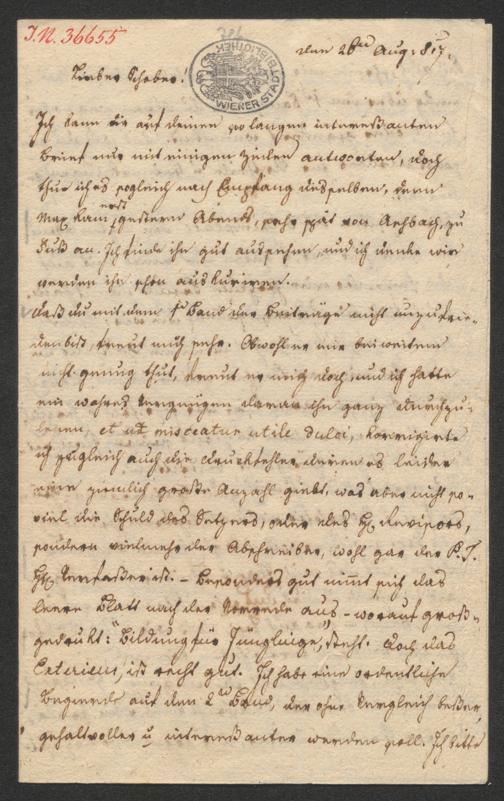 I.N. 36655
WIENER STADTBIBLIOTHEK
den 26ten Aug: 817.
Lieber Schober!
Ich kann dir auf deinen so langen interessanten
Brief nur mit einigen Zeilen antworten, doch
thue ich es sogleich nach Empfang desselben, denn
Max kam erst gestern Abends, sehr spät von Achbach, zu
Fuß an. Ich finde ihn gut aussehen, und ich denke wir
werden ihn schon auskuriren.
Daß du mit dem 1t Band der Beiträge nicht unzufrie-
den bist, freut mich sehr. Obwohl er mir bei weitem
nicht genug thut, freut er mich doch, und ich hatte
ein wahres Vergnügen daran ihn ganz durchzu-
lesen, et ut misceatur utile dulci, korrigirte
ich zugleich auch die Druckfehler deren es leider
eine ziemlich große Anzahl giebt, was aber nicht so-
viel die Schuld des Setzers, oder des H. Revisors,
sondern vielmehr der Abschreiber, wohl gar der P. T.
H. Verfaßer ist. – Besonders gut nimt sich das
leere Blatt nach der Vorrede aus – worauf groß-
gedrukt: "Bildung für Jünglinge", steht. Doch das
Exterieur, ist recht gut. Ich habe eine ordentliche
Begierde auf den 2ten Band, der ohne Vergleich beßer,
gehaltvoller u interessanter werden soll. Ich bitte